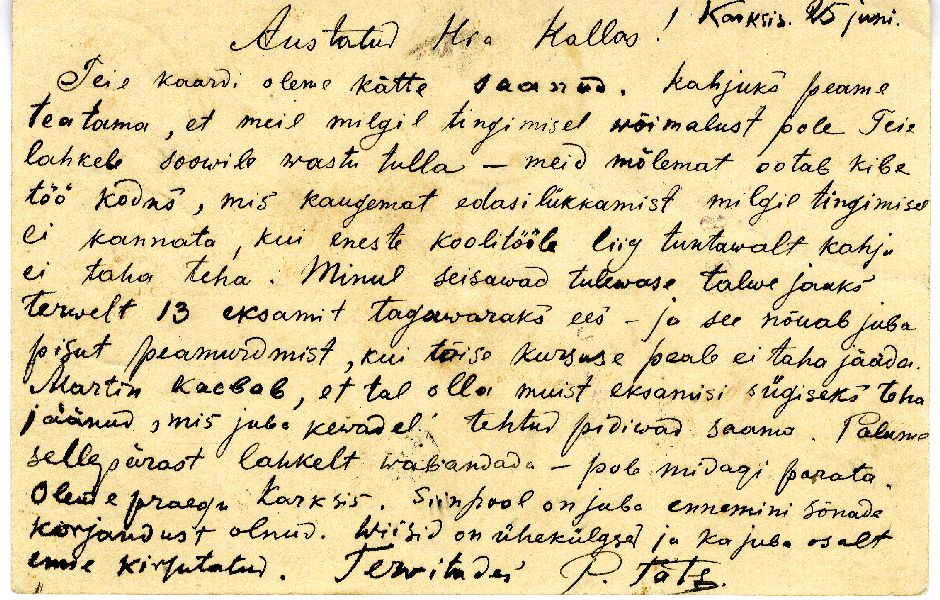 Karksis. 25 juni.
Austatud Hra Kallas!
Teie kaardi oleme kätte saanud. Kahjuks peame
teatama, et meil milgil tingimisel wõimalust pole Teie
lahkele soowile wastu tulla – meid mõlemat ootab kibe
töö kodus, mis kaugemat edasilükkamist milgil tingimisel
ei kannata, kui eneste koolitööle liig tuntawalt kahju
ei taha teha. Minul seisawad tulewase talwe jauks
terwelt 13 eksamit tagawaraks ees – ja see nõuab juba
pisut peamurdmist, kui teise kursuse peale ei taha jääda.
Martin kaebab, et tal olla muist eksamisi sügiseks teha
jäänud, mis juba kewadel tehtud pidiwad saama. Palume
sellepärast lahkelt wabandada – pole midagi parata.
Oleme praegu Karksis. Siinpool on juba ennemini sõnade
korjandust olnud. Wiisid on ühekülgsed ja ka juba osalt
enne kirjutatud. Terwitades P. Täts.